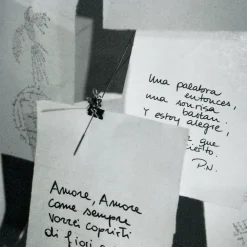 Una palabra
entonces,
una sonrisa
bastan.
Y estoy alegre,
que
cierto.
P.N.
Amore, Amore
come sempre
vorrei coprirti
di fiori